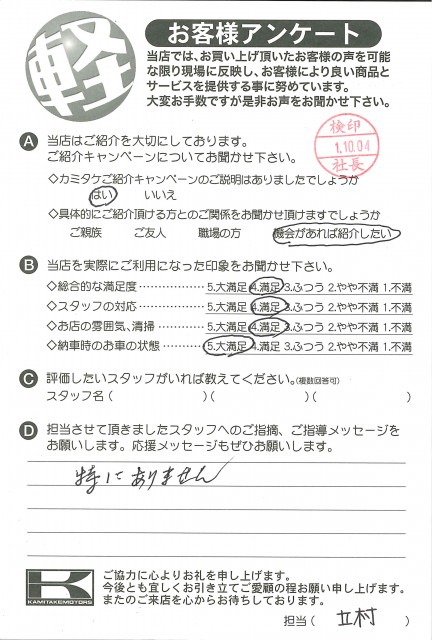 軽
お客様アンケート
当店では、お買い上げ頂いたお客様の声を可能
な限り現場に反映し、お客様により良い商品と
サービスを提供する事に努めています。
大変お手数ですが是非お声をお聞かせ下さい。
検印
1.10.04
社長
A 当店はご紹介を大切にしております。
ご紹介キャンペーンについてお聞かせ下さい。
◇カミタケご紹介キャンペーンのご説明はありましたでしょうか
はい いいえ
◇具体的にご紹介頂ける方とのご関係をお聞かせ頂けますでしょうか
ご親族 ご友人 職場の方 機会があれば紹介したい
B 当店を実際にご利用になった印象をお聞かせ下さい。
◇総合的な満足度…………………5.大満足 4.満足 3.ふつう 2.やや不満 1.不満
◇スタッフの対応…………………5.大満足 4.満足 3.ふつう 2.やや不満 1.不満
◇お店の雰囲気、清掃……………5.大満足 4.満足 3.ふつう 2.やや不満 1.不満
◇納車時のお車の状態……………5.大満足 4.満足 3.ふつう 2.やや不満 1.不満
C 評価したいスタッフがいれば教えてください。(複数回答可)
スタッフ名( )( )( )
D 担当させて頂きましたスタッフへのご指摘、ご指導メッセージを
お願いします。応援メッセージもぜひお願いします。
特にありません
K
KAMITAKEMOTORS
ご協力に心よりお礼を申し上げます。
今後とも宜しくお引き立てご愛顧の程お願い申し上げます。
またのご来店を心からお待ちしております。
担当( 立村 )